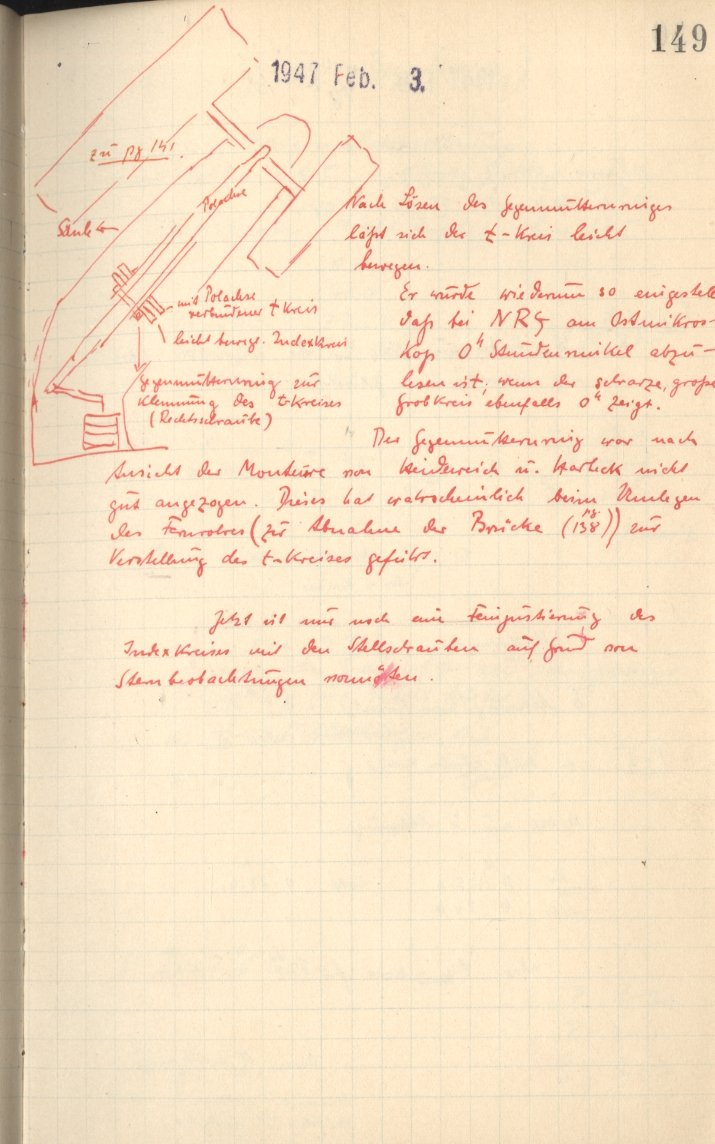 149
1947 Feb. 3.
zu pg 141.
Polachse
Säule
mit Polachse
verbundener t Kreis
leicht bewegl. Indexkreis
Gegenmutterring zur
Klemmung des t-Kreises
(Rechtsschraube)
Nach Lösen des Gegenmutterringes
läßt sich der t-Kreis leicht
bewegen.
Er wurde wiederum so eingestellt
daß bei am Ostmikros-
kop 0ʰ Stundenwinkel abzu-
lesen ist, wenn der schwarze, große
Grobkreis ebenfalls 0ʰ zeigt.
Der Gegenmutterring war nach
Ansicht der Monteure von Heidenreich u. Harbeck nicht
gut angezogen. Dieses hat wahrscheinlich beim Umlegen
des Fernrohres (zur Abnahme der Brücke (pg. 138)) zur
Verstellung des t-Kreises geführt.
Jetzt ist nur noch eine Feinjustierung des
Indexkreises mit den Stellschrauben auf Grund von
Sternbeobachtungen vonnöten.